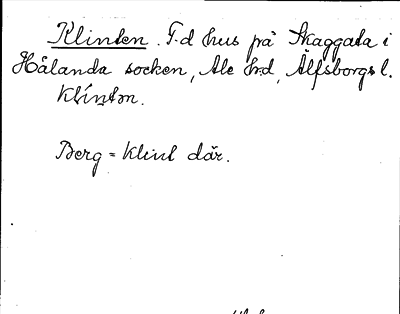 Klinten. F.d hus på Skaggata i
Hålanda socken, Ale hrd, Älfsborgs l.
Klíntən.
Berg = Klint där.